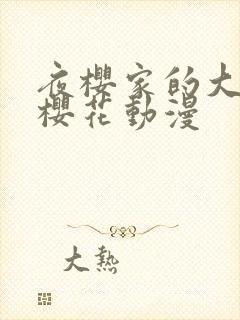 夜櫻家的大
櫻花動漫
大熱